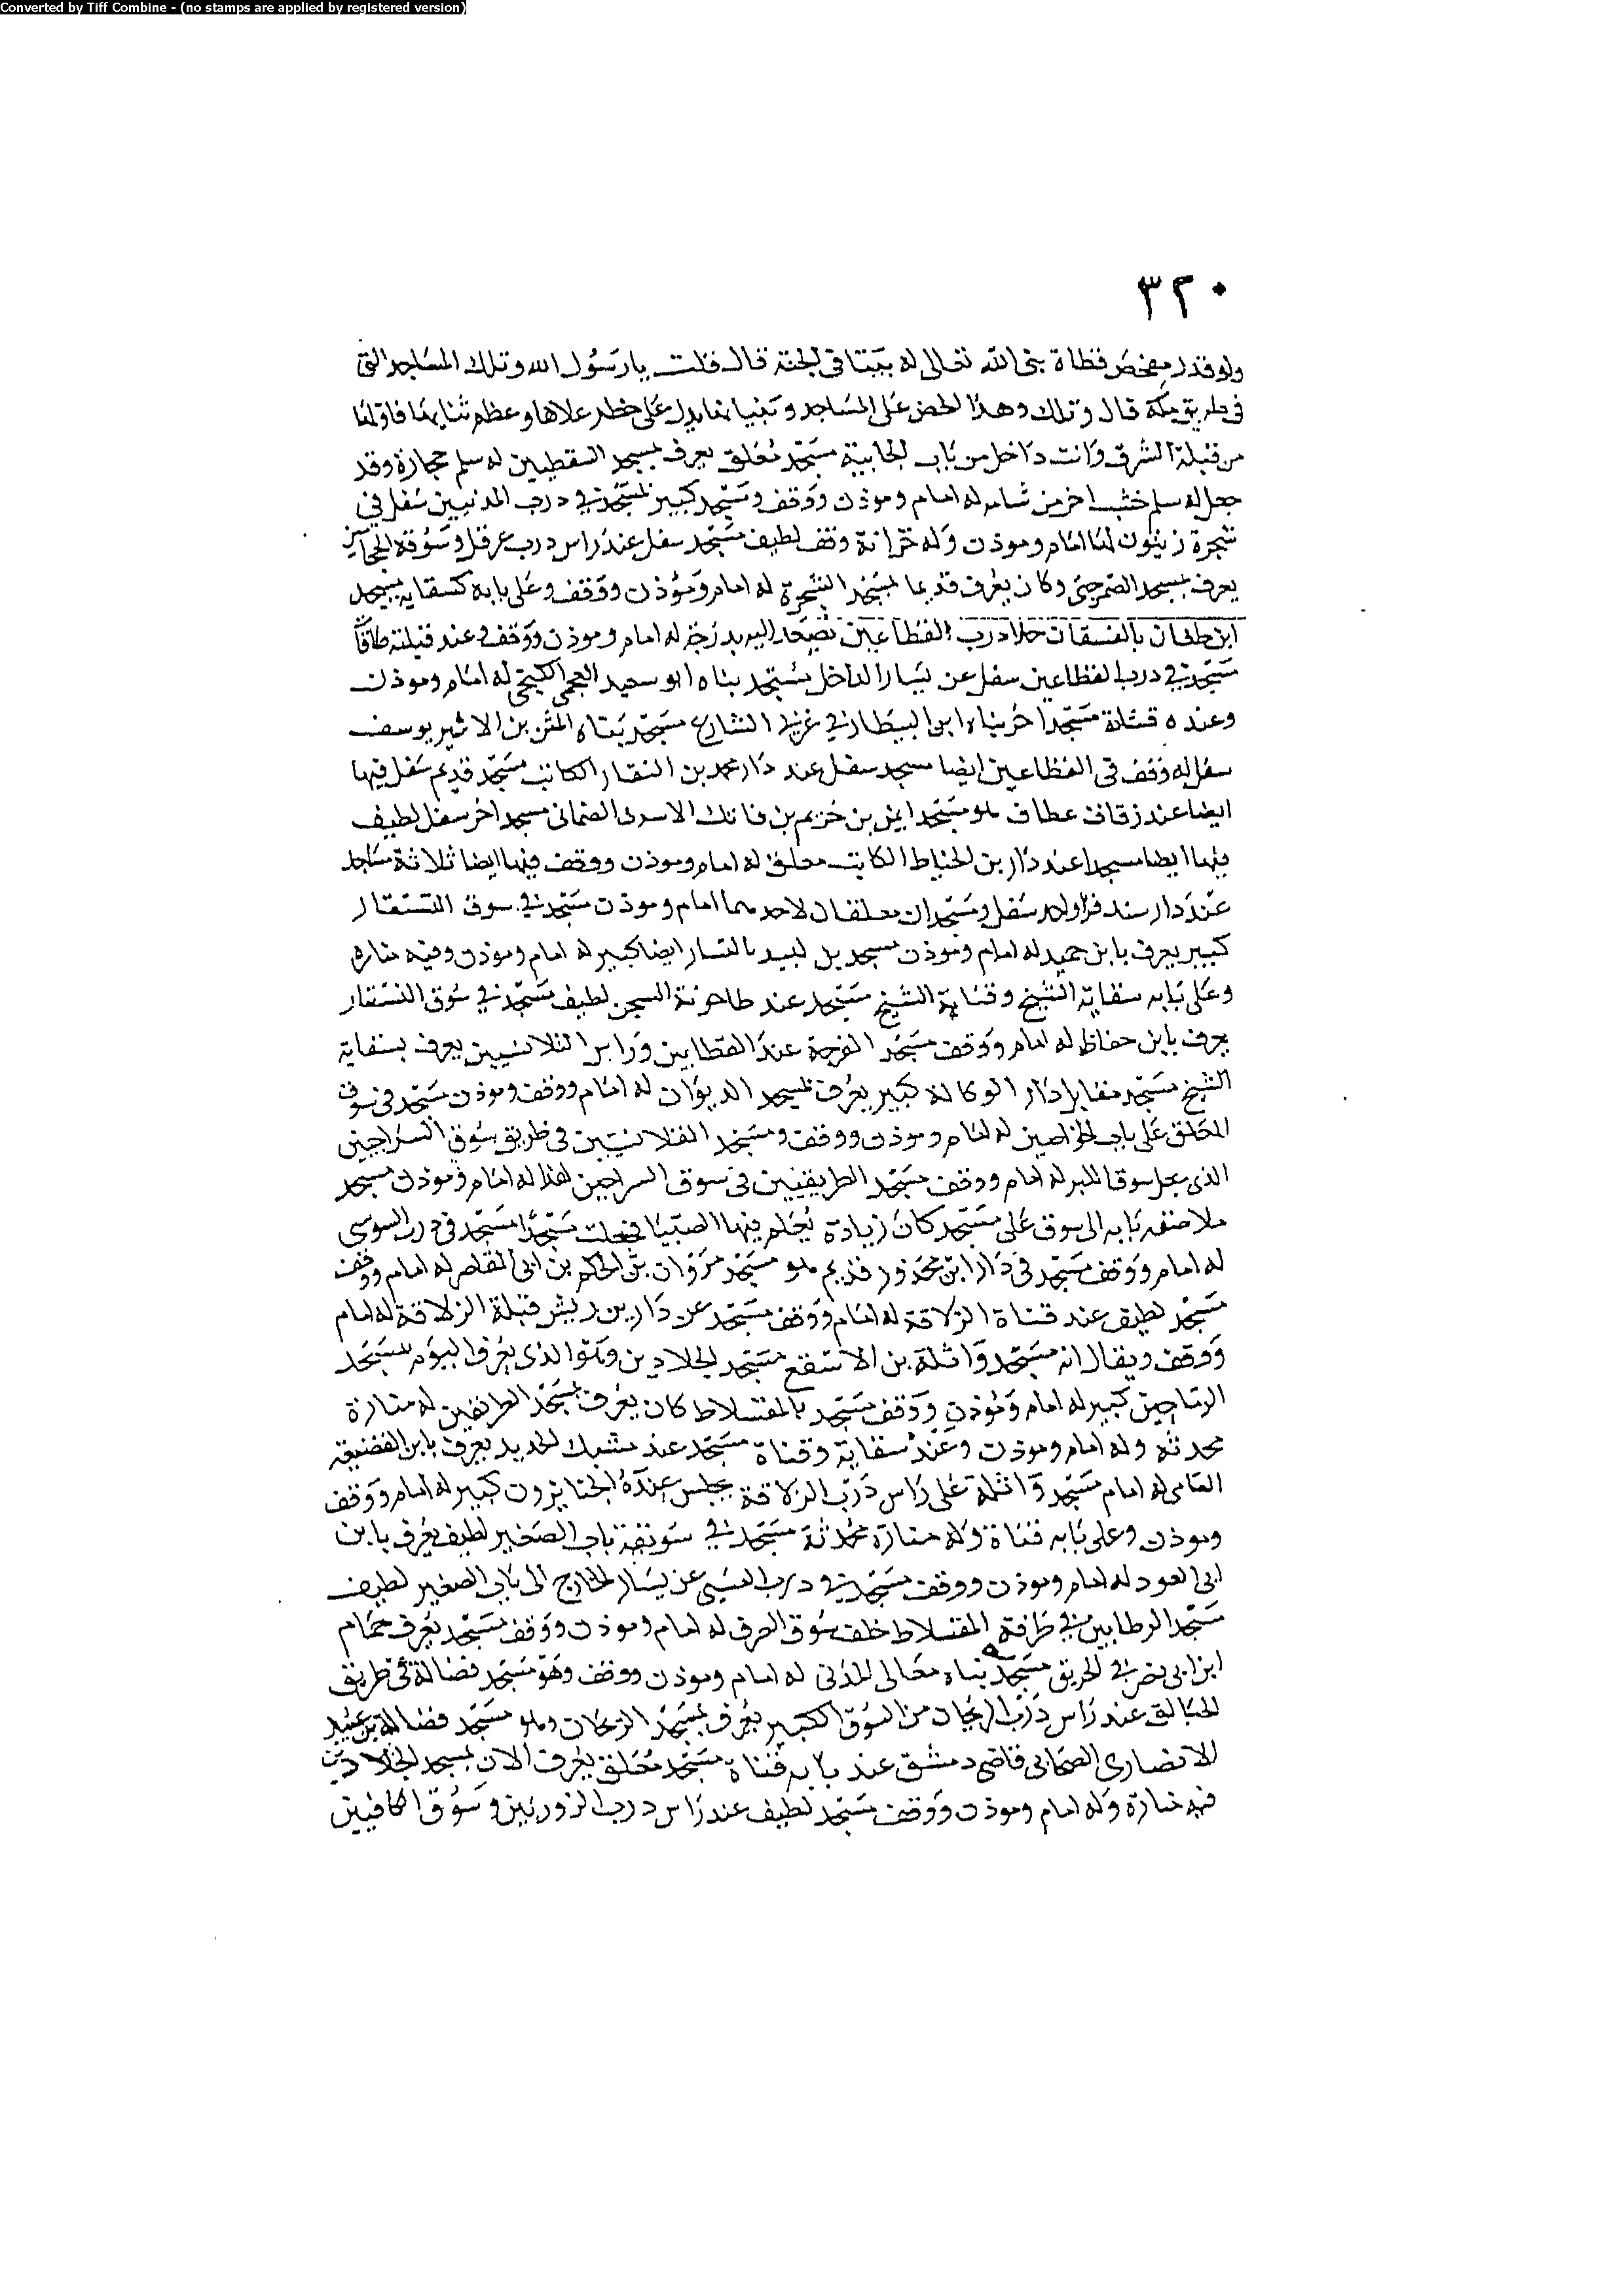 Converted by Tiff Combine - (no stamps are applied by registered version)
٣٢٠
ولو قدر مفحص قطاة بنى الله تعالى له بيتا في الجنة قال قلت يا رسول الله وتلك المساجد التي
في طريق مكة قال وتلك وهذا الحض على المساجد وبنيانها يدل على خطر علاها وعظم ثنايها فاولها
من قبلة الشرق وانت داخل من باب الجابية مسجد معلق يعرف بمسجد السقطيين له سلم حجارة وقد
جعل له سلم خشب اخر من شام له امام وموذن ووقف ومسجد كبير مسجد في درب المدنيين سفل في
شجرة زيتون لها امام وموذن وله خزانة وقف لطيف مسجد سفل عند راس درب عرقل وسوقة
يعرف بمسجد وكان يعرف قديما بمسجد الشجرة له امام وموذن ووقف وعلى بابه كسقاية مسجد
ابن طغان بالفسقات حلا درب القطاعين تصعد اليه بدرجة له امام وموذن ووقف وعند قبلته طاقا
مسجد في درب القطاعين سفل عن يسار الداخل مسجد بناه ابو سعيد العجمي له امام وموذن
وعنده قناة مسجد اخر بناه ابن البيطار في غربي الشارع مسجد بناه بن الاثير يوسف
سفل له وقف في القطاعين ايضا مسجد سفل عند دار محمد بن النقار الكاتب مسجد قديم سفل فيها
ايضا عند زقاق عطاف هو مسجد ايمن بن خريم بن فاتك الاسدي مسجد اخر سفل لطيف
فيها ايضا مسجدا عند دار بن الخياط الكاتب معلق له امام وموذن ووقف فيها ايضا ثلاثة مساجد
عند دار سفل ومسجدان معلقان لاحدهما امام وموذن مسجد في سوق
كبير يعرف بابن حميد له امام وموذن مسجد ايضا كبير له امام وموذن وفيه مناره
وعلى بابه سقاية الشيخ وقناية الشيخ مسجد عند طاحونة السجن لطيف مسجد في سوق
يعرف بابن حفاظ له امام ووقف مسجد عند القطابين يعرف بسقاية
الشيخ مسجد مقابل دار الوكالة كبير يعرف بمسجد الديوان له امام ووقف وموذن مسجد في سوق
المعلق على باب الخواصين له امام وموذن ووقف ومسجد القلانسيين في طريق سوق السراجين
الذي له امام ووقف مسجد الطريفيين في سوق السراجين له امام وموذن مسجد
ملاصقه بابه الى سوق على مسجد كان زيادة يعلم فيها الصبيان فجعلت مسجدا مسجد في درب السوسي
له امام ووقف مسجد في دار ابن محذور قديم هو مسجد مروان بن الحكم بن ابي العاص له امام ووقف
مسجد لطيف عند قناة الزلاقة له امام ووقف مسجد عن دار بن ريش قبلة الزلاقة له امام
ووقف ويقال انه مسجد واثلة بن الاسقع مسجد الجلادين وهو الذي يعرف اليوم بمسجد
كبير له امام وموذن ووقف مسجد بالمقسلاط كان يعرف بمسجد الطرايفين له منارة
محدثة وله امام وموذن وعنده سقاية وقناة مسجد عند مشبك الحديد يعرف بابن
العامي له امام مسجد واثلة على راس درب الزلاقة يجلس عنده كبير له امام ووقف
وموذن وعلى بابه قناة وله منارة محدثة مسجد في سويقة باب الصغير لطيف يعرف بابن
ابي العود له امام وموذن ووقف مسجد في درب عن يسار الخارج الى باب الصغير لطيف
مسجد الرطابين في المقسلاط خلف سوق الصرف له امام وموذن ووقف مسجد يعرف حمام
ابن ابي نصر في الحريق مسجد بناه معالي المدني له امام وموذن ووقف وهو مسجد فضالة في طريق
عند راس درب الريحان من السوق الكبير يعرف بمسجد الريحان وهو مسجد فضالة بن عبيد
الانصاري الصحابي قاضي دمشق عند بابه قناة مسجد معلق يعرف الان بمسجد الجلادين
فيه منارة وله امام وموذن ووقف مسجد لطيف عند راس درب وسوق